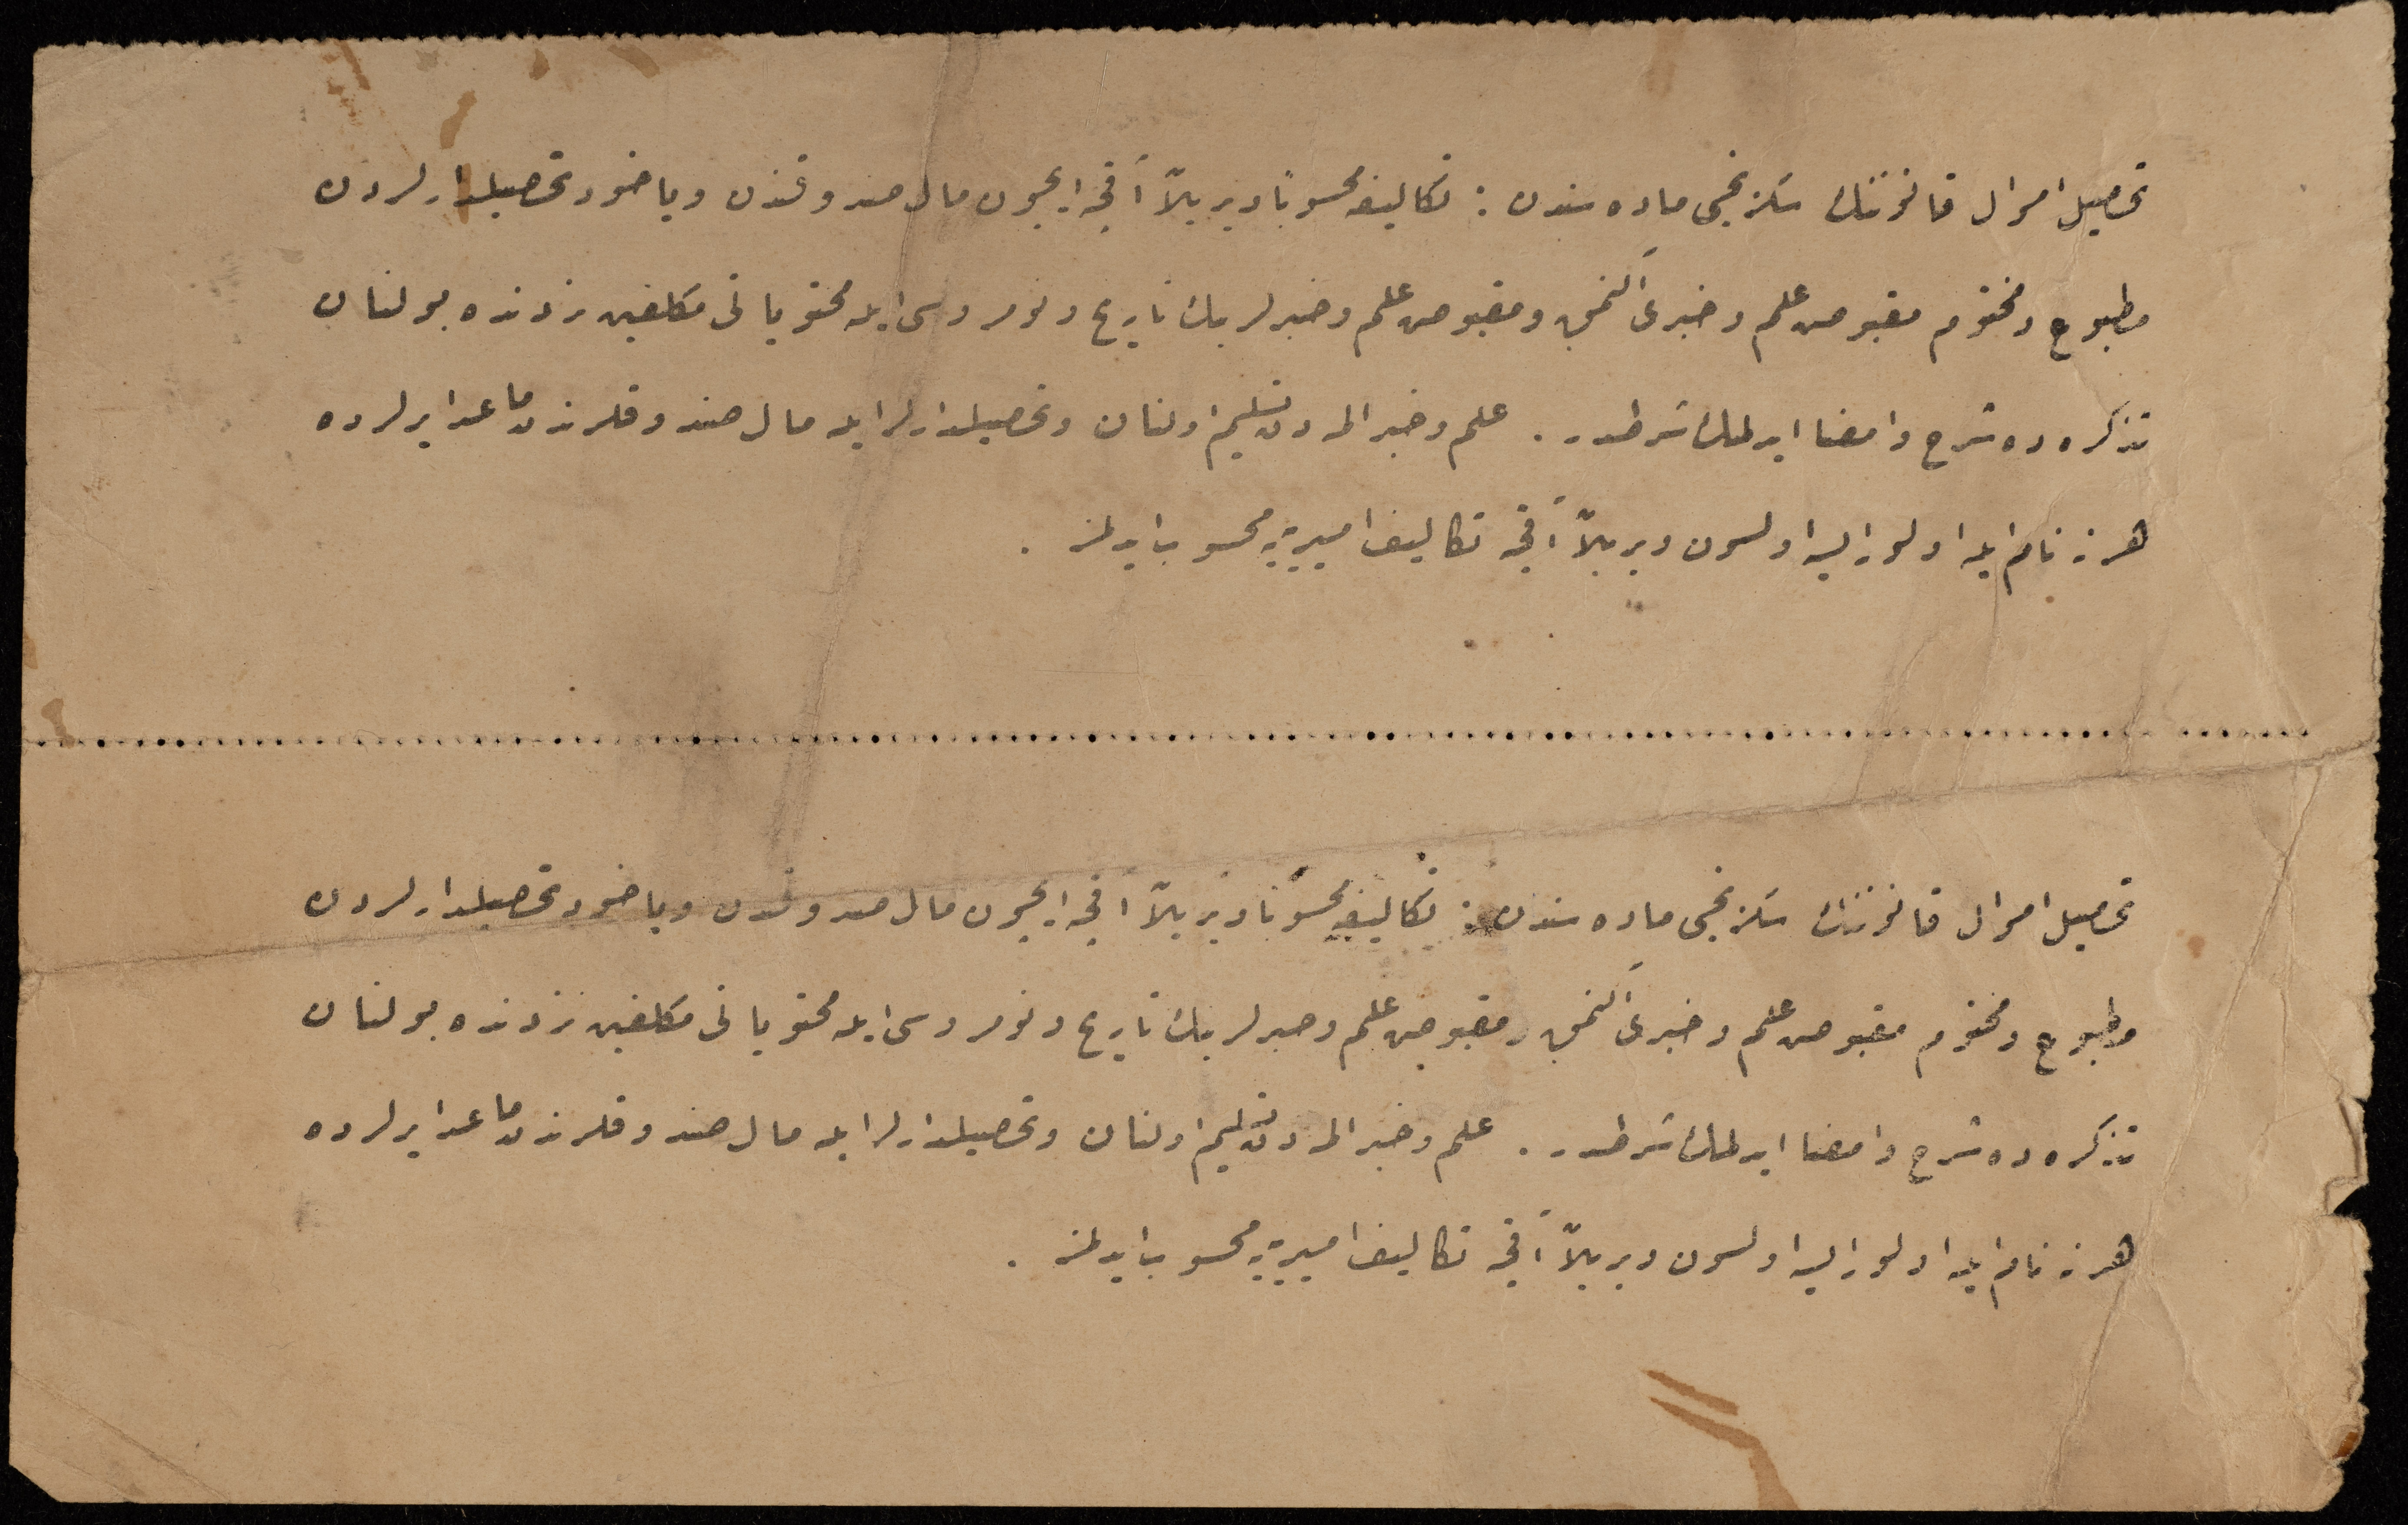 تحصیل اموال قانوننك سكزنجی ماده سندن : تكالیفه محسوباً ویریلن آقچه ایچون مال صندوغندن ویاخود تحصیلدارلردن
مطبوع ومختوم مقبوض علم وخبری آلنمق ومقبوض علم وخبرلرینك تاریخ ونومروسی ایله محتویاتی مكلفین نزدنده بولنان
تذكره ده شرح وامضا ایدلمك شرطدر . علم وخبر المدن تسلیم اولنان وتحصیلدارلر ایله مال صندوقلرندن ماعدا یرلرده
هر نه نام ایله اولور ایسه اولسون ویریلن آقچه تكالیف امیریه یه محسوب ایدلمز .
تحصیل اموال قانوننك سكزنجی ماده سندن : تكالیفه محسوباً ویریلن آقچه ایچون مال صندوغندن ویاخود تحصیلدارلردن
مطبوع ومختوم مقبوض علم وخبری آلنمق ومقبوض علم وخبرلرینك تاریخ ونومروسی ایله محتویاتی مكلفین نزدنده بولنان
تذكره ده شرح وامضا ایدلمك شرطدر . علم وخبر المدن تسلیم اولنان وتحصیلدارلر ایله مال صندوقلرندن ماعدا یرلرده
هر نه نام ایله اولور ایسه اولسون ویریلن آقچه تكالیف امیریه یه محسوب ایدلمز .